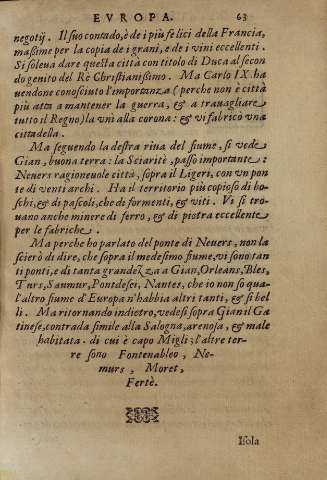 EVROPA. 63
negotij. Il suo contado, è de i più felici della Francia,
massime per la copia de i grani, e de i vini eccellenti.
Si soleua dare questa città con titolo di Duca al secon
do genito del Rè Christianissimo. Ma Carlo IX. ha
uendone conosciuto l'importanza (perche non è città
più atta a mantener la guerra, & a trauagliare
tutto il Regno) la vnì alla corona: & vi fabricò vna
cittadella.
Ma seguendo la destra riua del fiume, si vede
Gian, buona terra: la Sciaritè, passo importante:
Neuers ragioneuole città, sopra il Ligeri, con vn pon
te di venti archi. Ha il territorio più copioso di bo-
schi, & di pascoli, che di formenti, & viti. Vi si tro-
uano anche minere di ferro, & di pietra eccellente
per le fabriche.
Ma perche ho parlato del ponte di Neuers, non la
scierò di dire, che sopra il medesimo fiume, vi sono tan
ti ponti, e di tanta grandezza a Gian, Orleans, Bles,
Turs, Saumur, Pontdesei, Nantes, che io non so qua-
l'altro fiume d'Europa n'habbia altri tanti, & si bel
li. Ma ritornando indietro, vedesi sopra Gian il Ga
tinese, contrada simile alla Salogna, arenosa, & male
habitata. di cui è capo Migli; l'altre ter-
re sono Fontenableo, Ne-
murs, Moret,
Fertè.
Isola